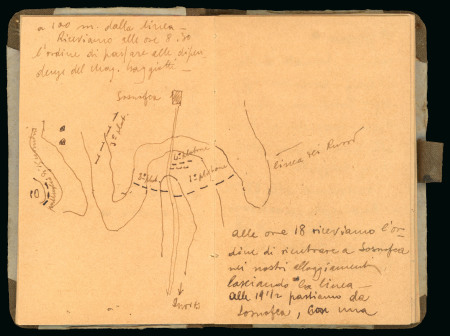 a 100 m. dalla linea —
Riceviamo alle ore 8.30
l'ordine di passare alle dipen
denze del mag.
Sosnofca
3° plot.
4° plotone
2° plot.
1° plotone
linea dei Russi
alle ore 18 riceviamo l'or-
dine di rientrare a Sosnofca
nei nostri alloggiamenti
lasciando la linea —
Alle 19 1/2 partiamo da
Sosnofca, con una